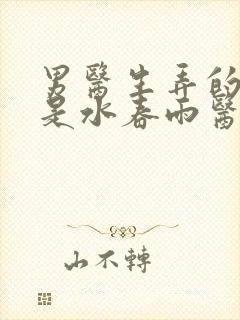 男醫生弄的
是水春雨醫
山不轉